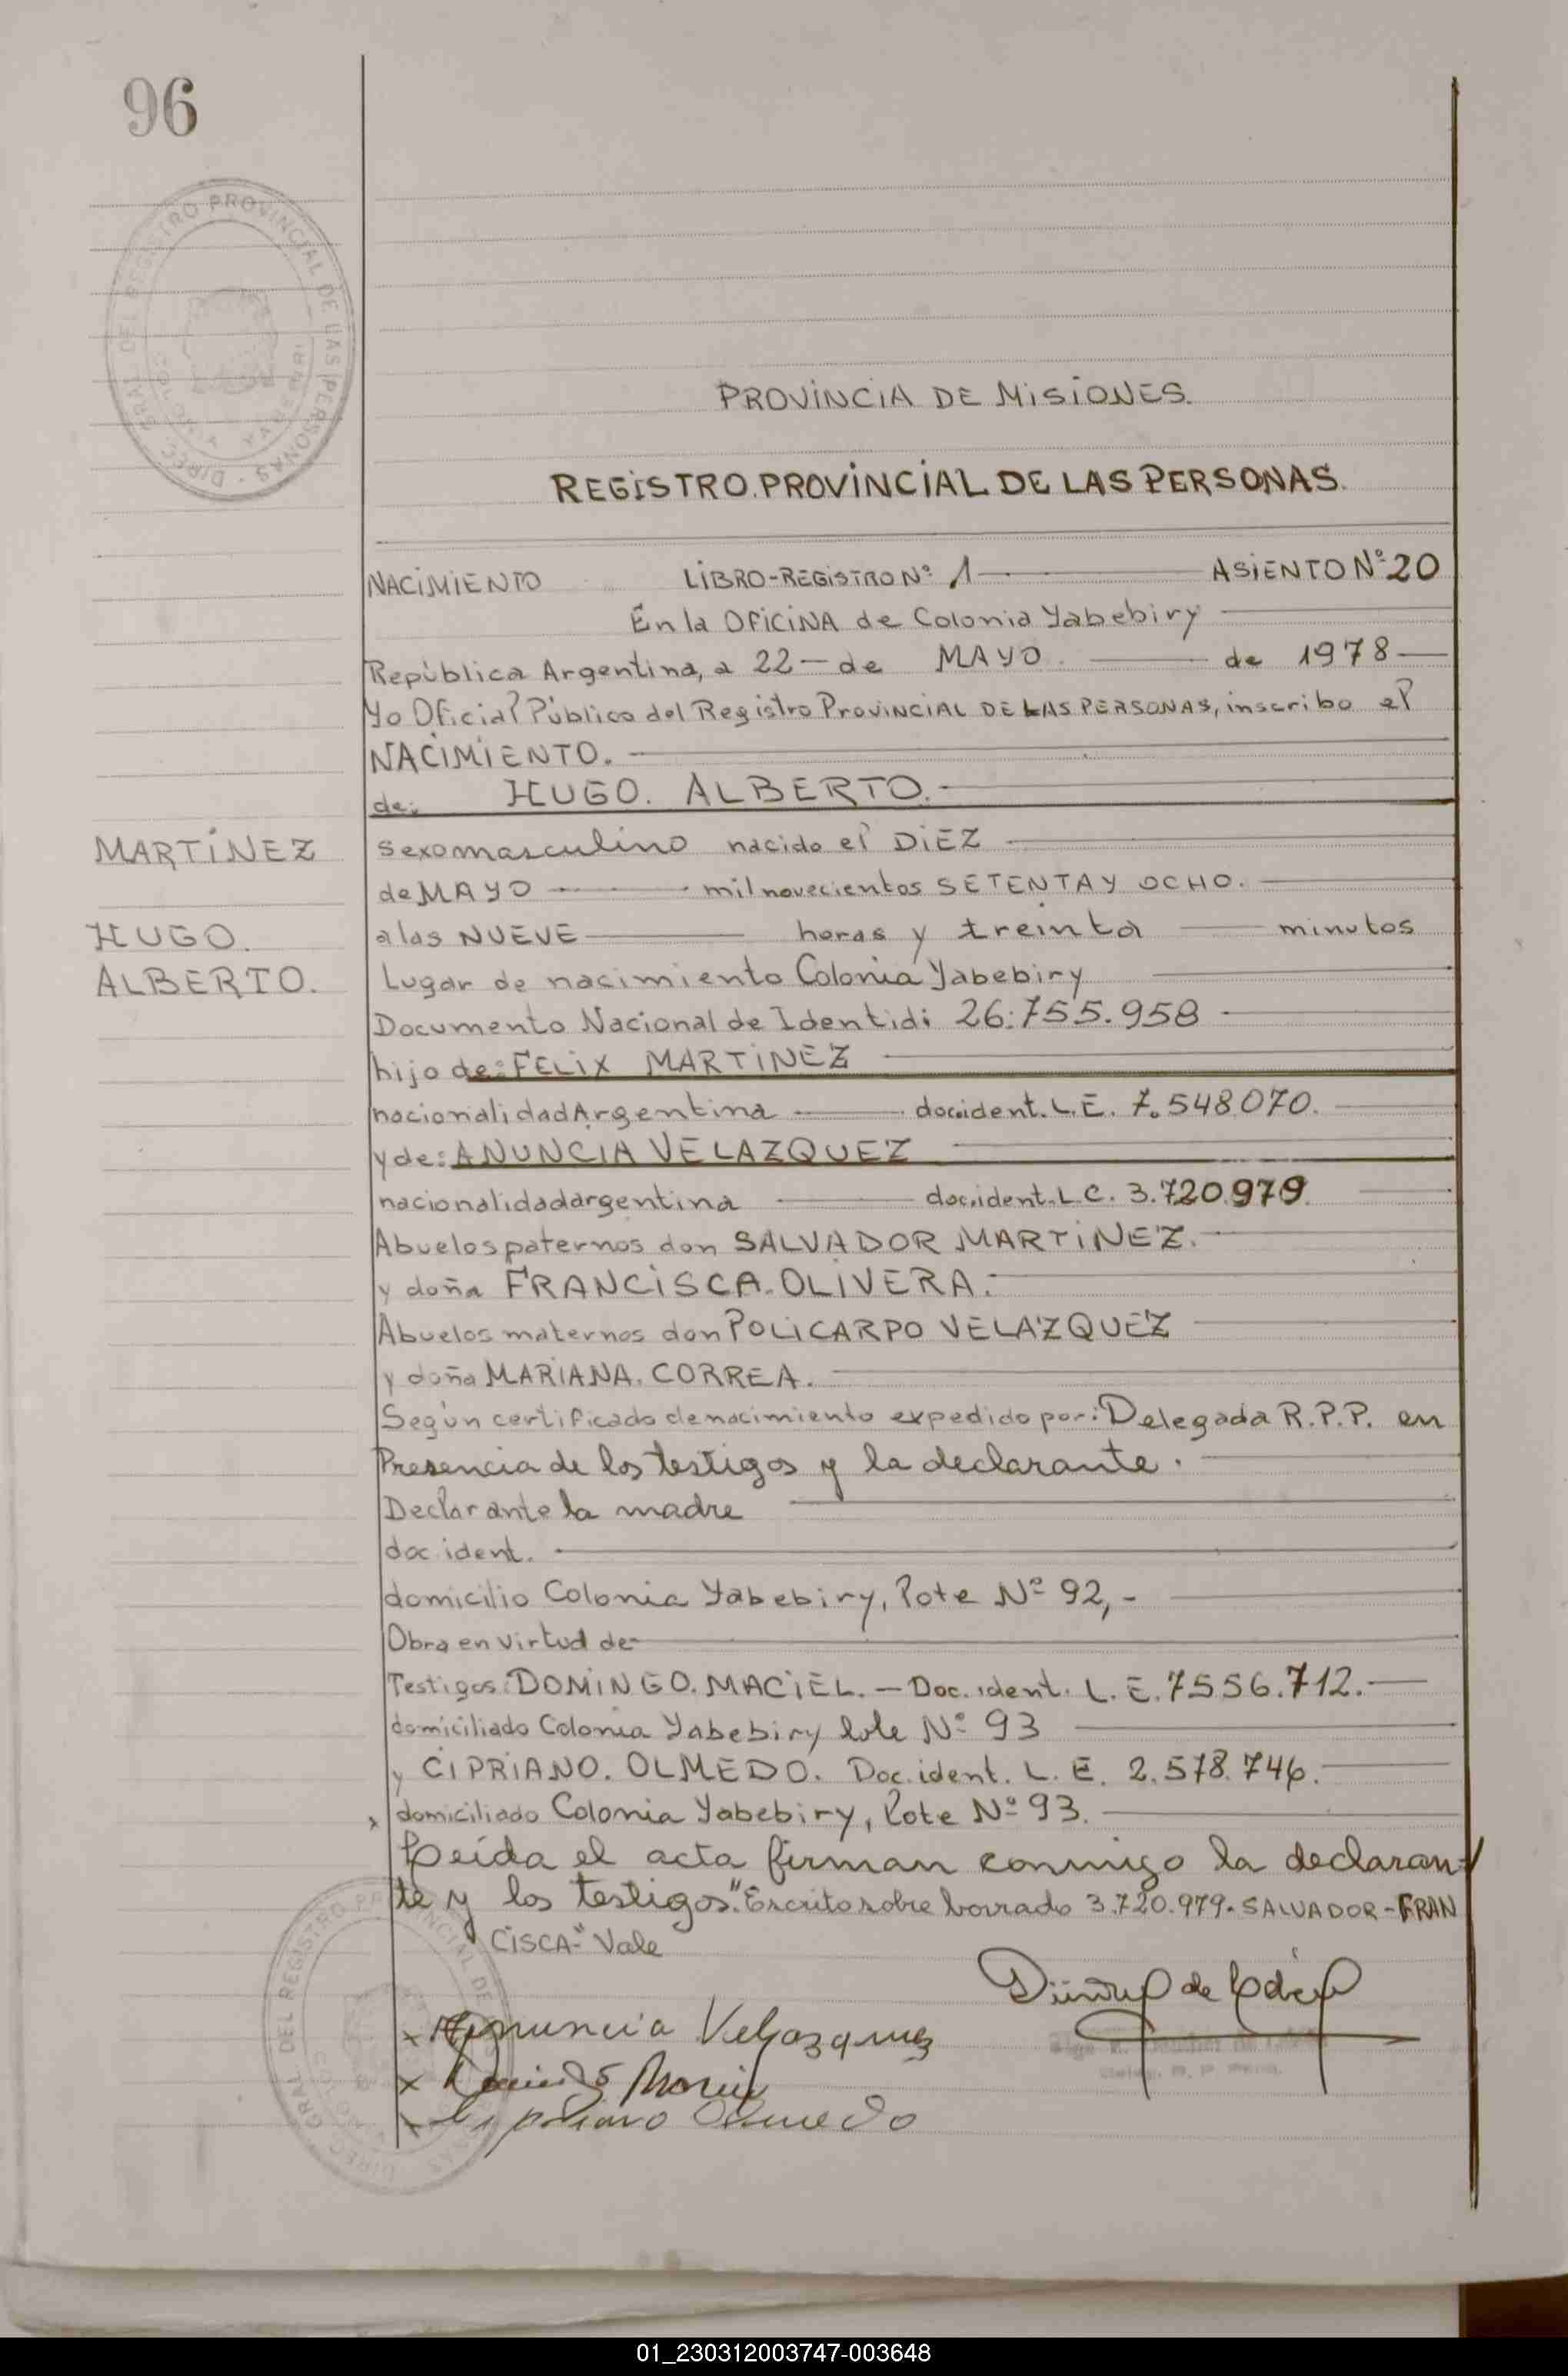 96
DIREC. GRAL. DEL REGISTRO PROVINCIAL DE LAS PERSONAS
PROVINCIA DE MISIONES.
REGISTRO PROVINCIAL DE LAS PERSONAS.
NACIMIENTO LIBRO-REGISTRO Nº 1 ASIENTO Nº 20
En la OFICINA de Colonia Yabebiry
República Argentina, a 22 - de MAYO de 1978
Yo Oficial Público del Registro PROVINCIAL DE LAS PERSONAS, inscribo el
NACIMIENTO.
de: HUGO. ALBERTO.
MARTÍNEZ
HUGO.
ALBERTO.
sexo masculino nacido el DIEZ
de MAYO mil novecientos SETENTA Y OCHO.
a las NUEVE horas y treinta minutos
Lugar de nacimiento Colonia Yabebiry
Documento Nacional de Identid: 26.755.958
hijo de: FELIX MARTINEZ
nacionalidad Argentina doc.ident. L.E. 7.548.070.
y de: ANUNCIA VELAZQUEZ
nacionalidad argentina doc.ident. L.C. 3.720.979.
Abuelos paternos don SALVADOR MARTINEZ.
y doña FRANCISCA. OLIVERA.
Abuelos maternos don POLICARPO VELAZQUEZ
y doña MARIANA. CORREA.
Según certificado de nacimiento expedido por: Delegada R.P.P. en
Presencia de los testigos y la declarante.
Declarante la madre
doc ident.
domicilio Colonia Yabebiry, lote Nº 92,-
Obra en virtud de
Testigos: DOMINGO. MACIEL. - Doc. ident. L.E. 7556.712.
domiciliado Colonia Yabebiry lote Nº 93
y CIPRIANO. OLMEDO. Doc. ident. L.E. 2.578.746.
x domiciliado Colonia Yabebiry, lote Nº 93.
Leída el acta firman conmigo la declaran-
te y los testigos. "Escrito sobre borrado 3.720.979. SALVADOR - FRAN
CISCA-" Vale
x Anuncia Velazquez
x
x Cipriano Olmedo
DIREC. GRAL. DEL REGISTRO PROVINCIAL DE LAS PERSONAS
01_230312003747-003648